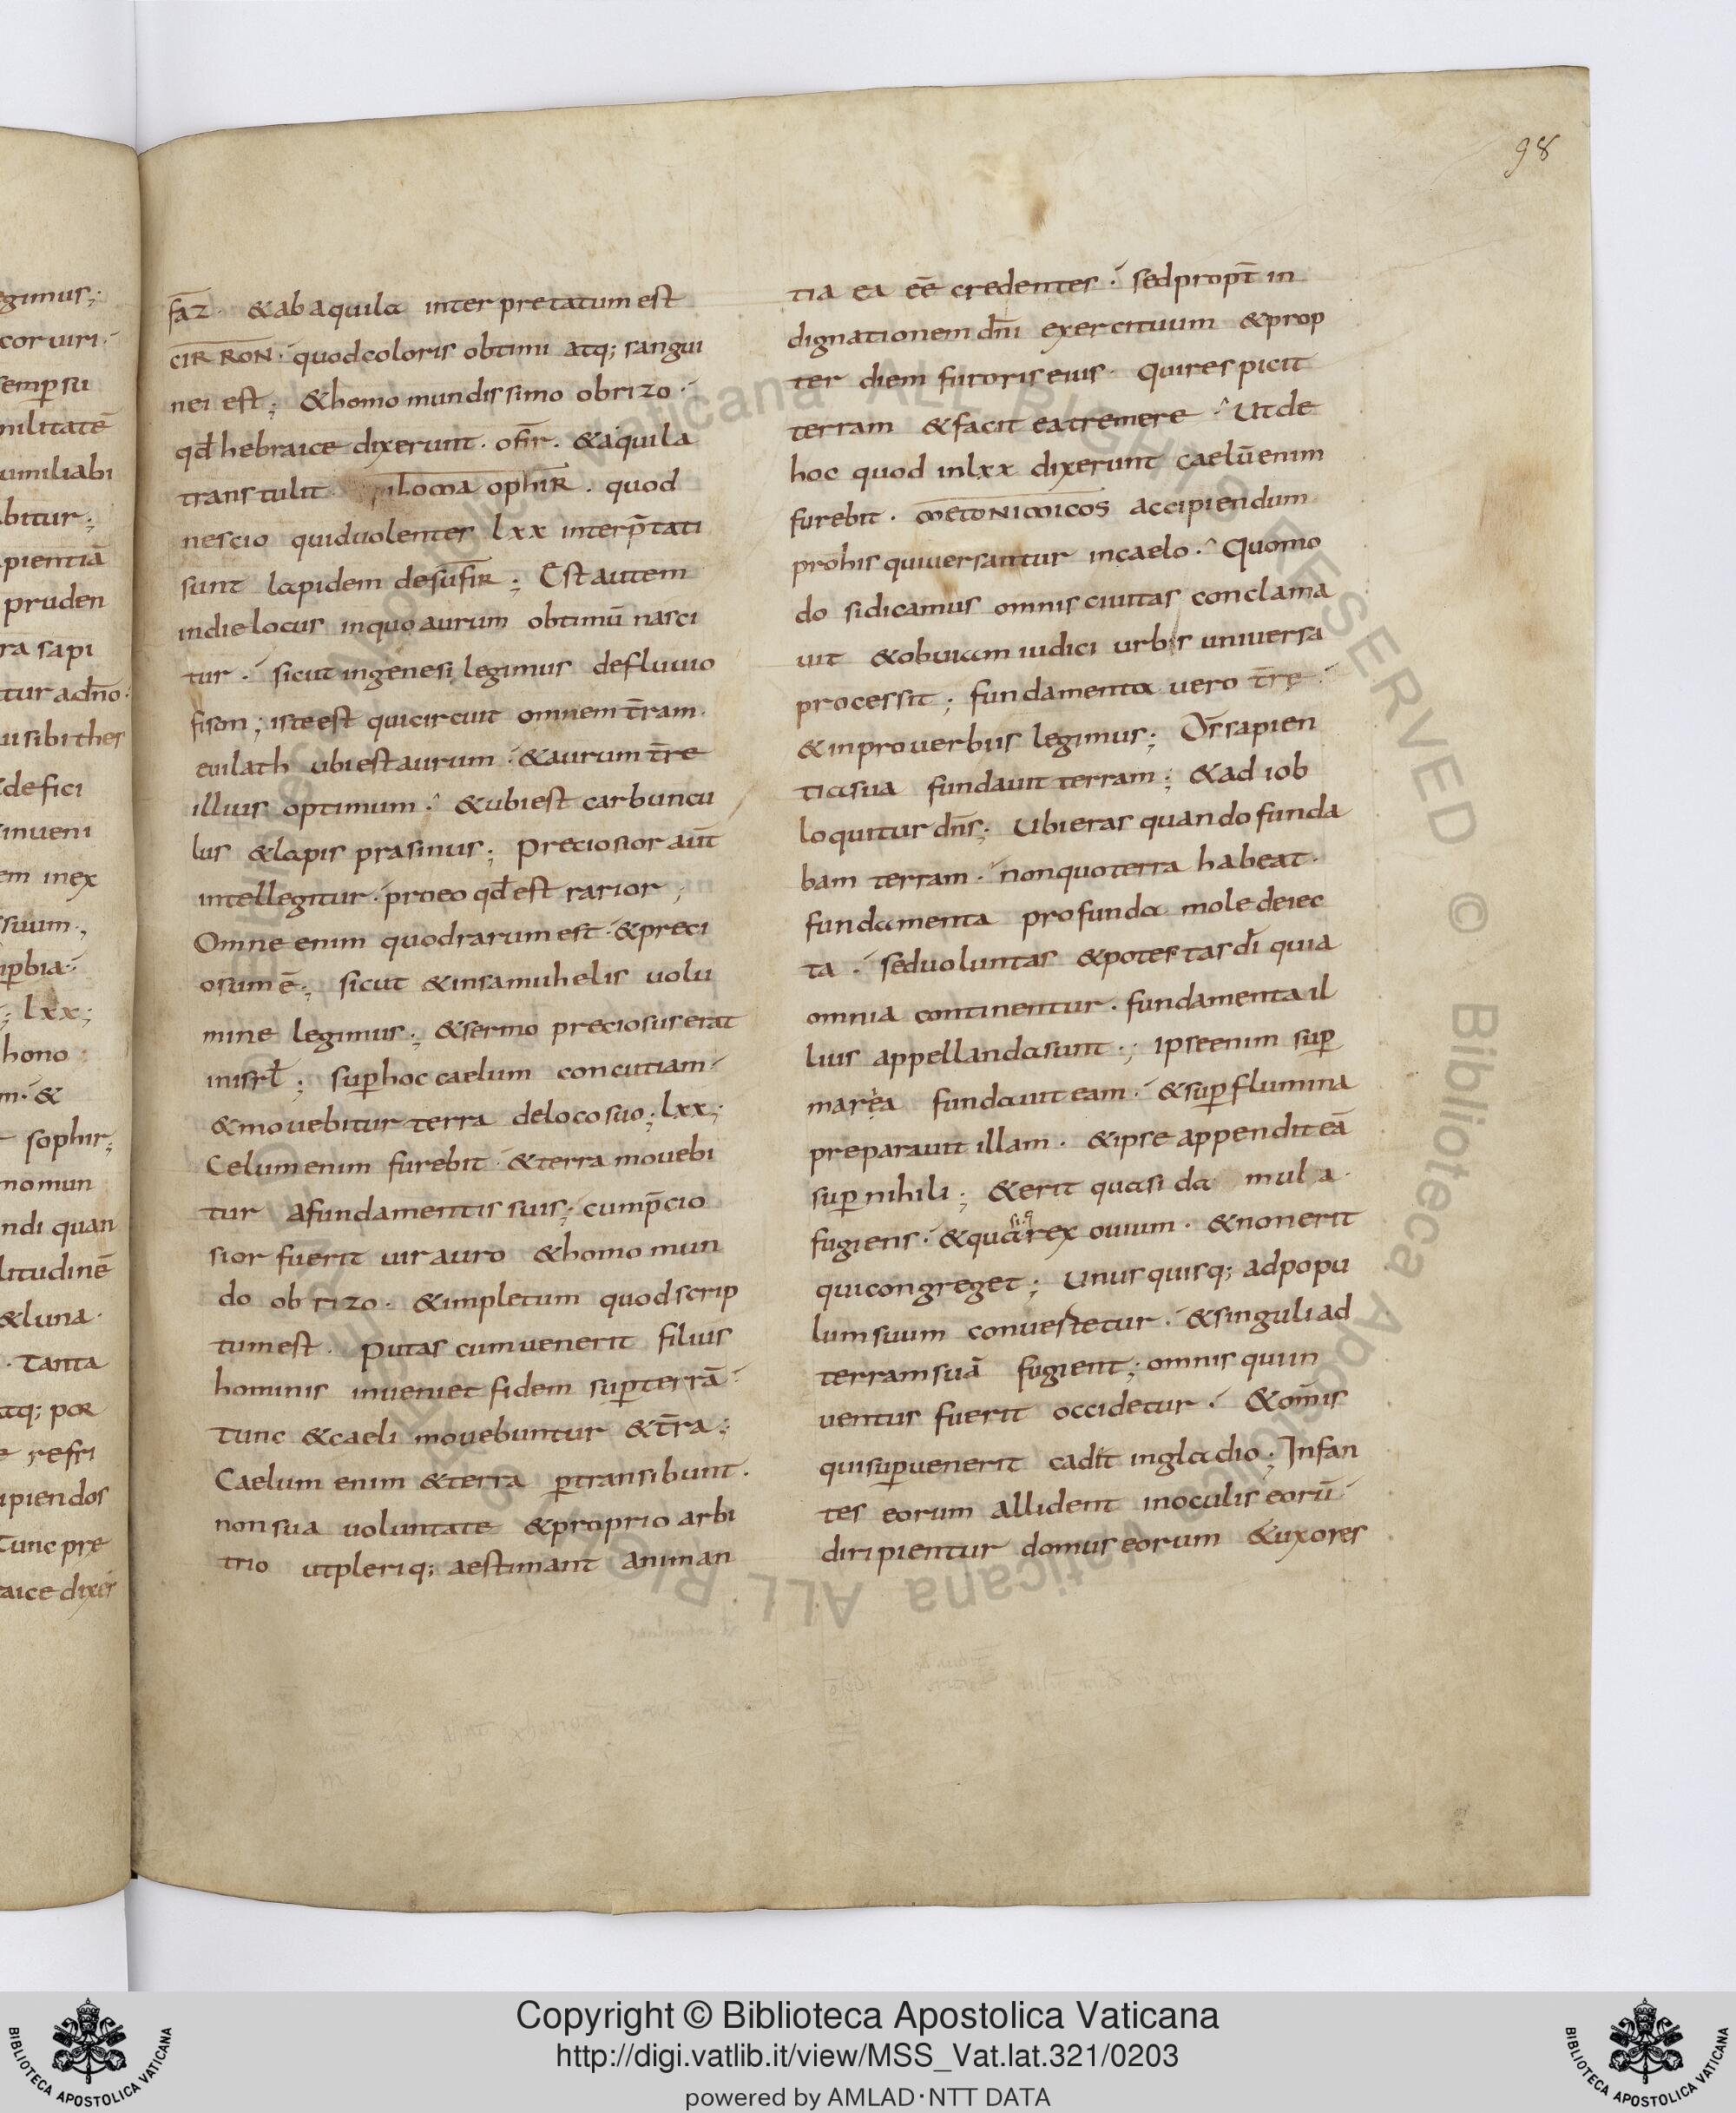 98
egimus;
cor uiri
semp̄ su
militatē
umiliabi
bitur;
pientiā
pruden
ra sapi
tur ad dn̄o
ui sibi thes
defici
inueni
em inex
suum;
up̄bia
; lxx;
hono
m. &
sophir;
no mun
ndi quan
litudinē
& luna
. Tanta
atq; por
e refri
ipiendos
Tunc pre
raice dixer̄
faz̄. & ab aquila inter pretatum est
CIRRON. quod coloris obtimi atq; sangui
nei est; & homo mundissimo obrizo
qd̄ hebraice dixerunt. ofir̄. & aquila
transtulit. ophir. quod
nescio quid uolenter lxx interp̄tati
sunt lapidem de sufir; Est autem
indie locus in quo aurum obtimū nasci
tur. sicut in genesi legimus de fluuio
fison; iste est qui circuit omnem tr̄am.
euilath ubi est aurum. & aurum tr̄re
illius optimum. & ubi est carbuncu
lus & lapis prasinus; Preciosior aut̄
intellegitur. pro eo qd̄ est rarior;
Omne enim quod rarum est. & preci
osum ē; sicut & in samuhelis uolu
mine legimus; & sermo preciosus erat
in isrl̄; sup̄ hoc caelum concutiam
& mouebitur terra de loco suo; lxx;
Celum enim furebit & terra mouebi
tur a fundamentis suis; cum p̄cio
sior fuerit uir auro & homo mun
do obrizo. & impletum quod scrip
tum est. Putas cum uenerit filius
hominis inueniet fidem sup̄ terrā
tunc & caeli mouebuntur & tr̄ra;
Caelum enim & terra p̄transibunt.
non sua uoluntate & proprio arbi
trio ut pleriq; aestimant animan
tia ea eē credentes. sed propt̄ in
dignationem dn̄i exercituum & prop
ter diem furoris eius. qui respicit
terram & facit ea tremere. Ut de
hoc quod in lxx dixerunt caelū enim
furebit. METONIMICOS accipiendum
pro his qui uersantur in caelo. Quomo
do si dicamus omnis ciuitas conclama
uit & obuiam iudici urbis uniuersa
processit; fundamenta uero tr̄rę
& in prouerbiis legimus; Ds̄ sapien
tia sua fundauit terram; & ad iob
loquitur dn̄s; Ubi eras quando funda
bam terram. non quo terra habeat.
fundamenta profunda mole deiec
ta. sed uoluntas & potestas dī quia
omnia continentur. fundamenta il
lius appellanda sunt; Ipse enim sup̄
marea fundauit eam. & sup̄ flumina
preparauit illam. & ipse appendit eā
sup̄ nihili; & erit quasi da mula
fugiens. & quasi grex ouium. & non erit
qui congreget; Unusquisq; ad popu
lum suum conuertetur. & singuli ad
terram suā fugient; omnis qui in
uentus fuerit occidetur. & om̄is
qui sup̄uenerit cadit in gladio; Infan
tes eorum allident in oculis eorū
diripientur domus eorum & uxores
Copyright © Biblioteca Apostolica Vaticana
http://digi.vatlib.it/view/MSS_Vat.lat.321/0203
powered by AMLAD·NTT DATA
BIBLIOTECA APOSTOLICA VATICANA
BIBLIOTECA APOSTOLICA VATICANA